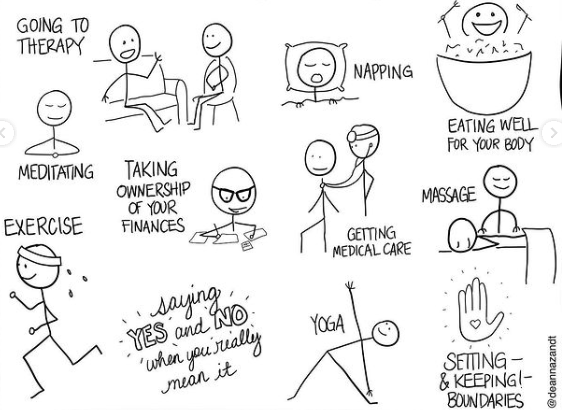 GOING TO
THERAPY
NAPPING
EATING WELL
FOR YOUR BODY
MEDITATING
TAKING
OWNERSHIP
OF YOUR
FINANCES
GETTING
MEDICAL CARE
MASSAGE
EXERCISE
saying
YES and NO
when you really
mean it
YOGA
SETTING –
& KEEPING! –
BOUNDARIES
@deannazandt